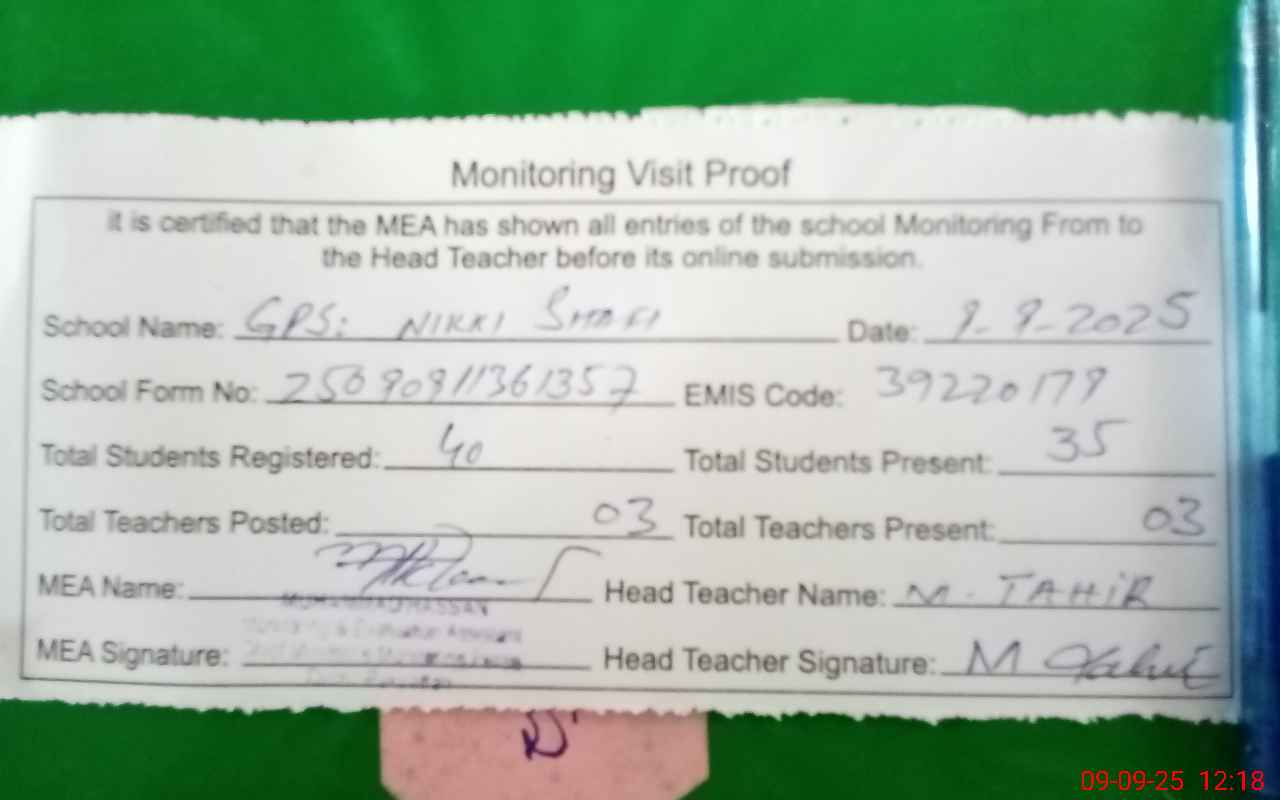 Monitoring Visit Proof
it is certified that the MEA has shown all entries of the school Monitoring From to
the Head Teacher before its online submission.
School Name: GPS: NIKKI Date: 9-9-2025
School Form No: 25090911361357 EMIS Code: 39220179
Total Students Registered: 40 Total Students Present: 35
Total Teachers Posted: 03 Total Teachers Present: 03
MEA Name: Head Teacher Name: M. TAHIR
MUHAMMAD HASSAN
Monitoring & Evaluation Assistant
MEA Signature: Head Teacher Signature: M Tahir
09-09-25 12:18